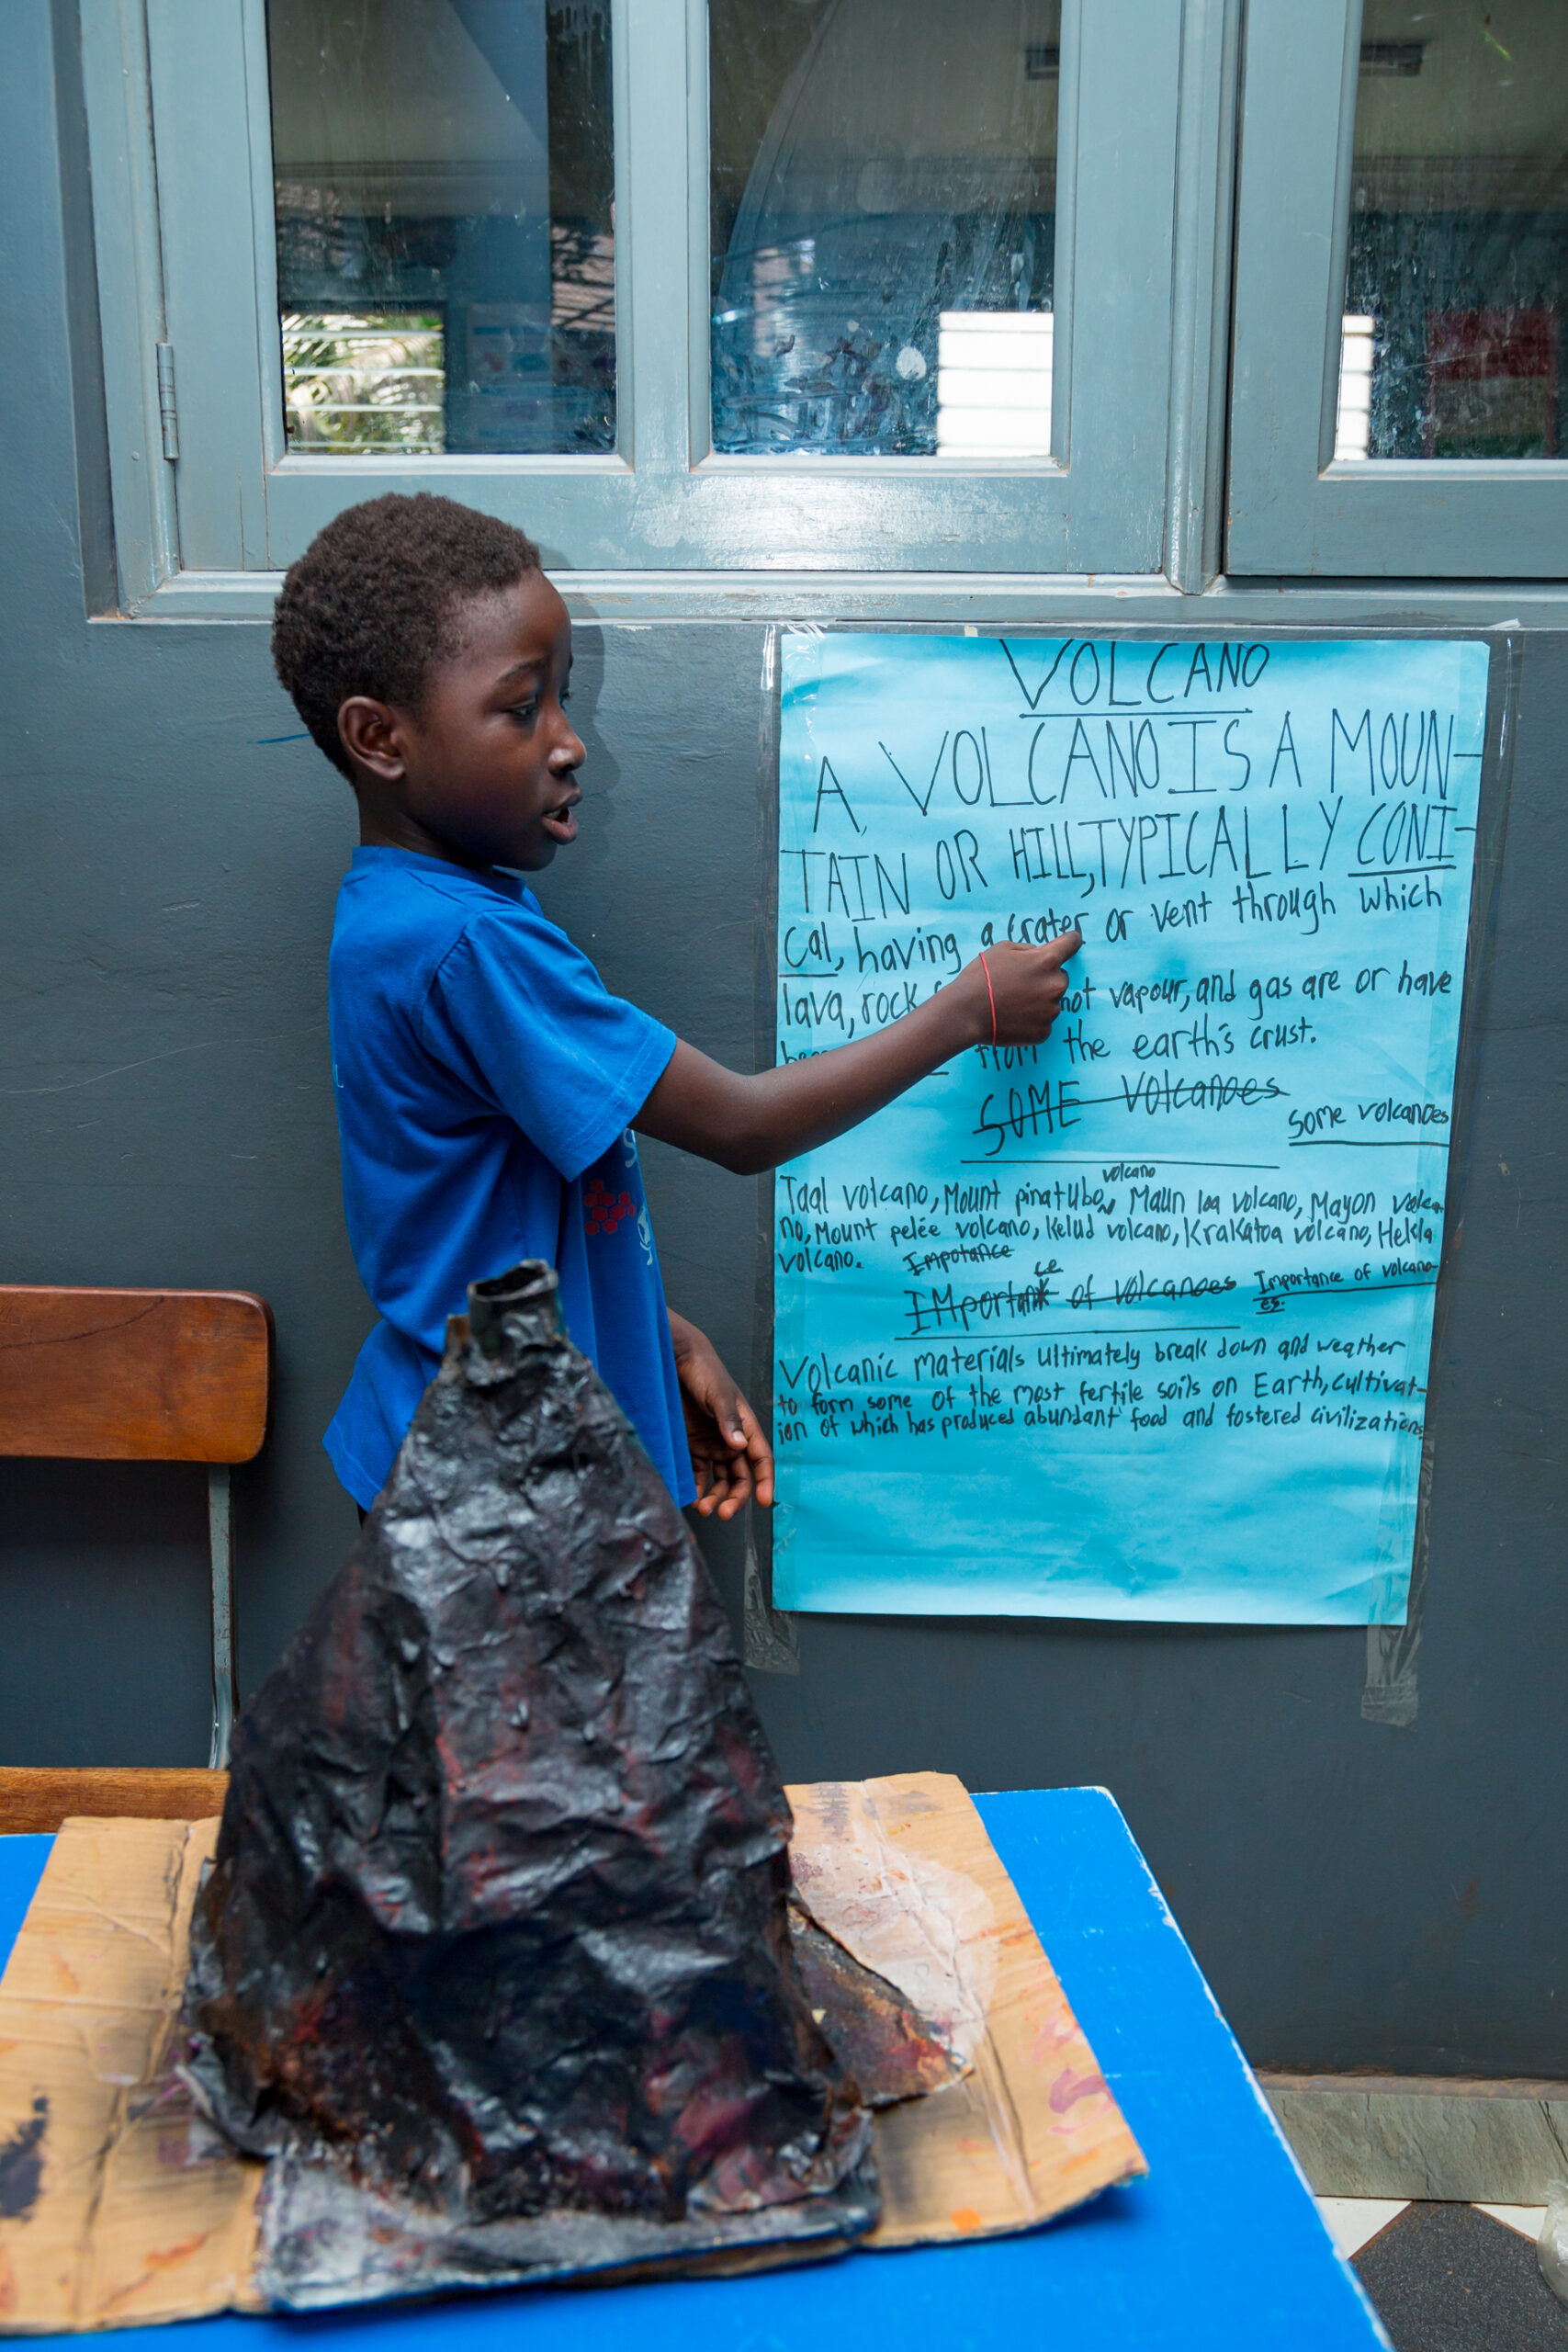 VOLCANO
A VOLCANO IS A MOUN-
TAIN OR HILL, TYPICALLY CONI-
Cal, having a crater or vent through which
lava, rock hot vapour, and gas are or have
from the earth's crust.
SOME Volcanoes
Some volcanoes
volcano
Taal volcano, Mount pinatubo, Maun loa volcano, Mayon volca-
no, Mount pelée volcano, Kelud volcano, Krakatoa volcano, Hekla
volcano. Impotance
ce
Important of volcanoes Importance of volcano-
es.
Volcanic materials ultimately break down and weather
to form some of the most fertile soils on Earth, cultivat-
ion of which has produced abundant food and fostered civilizations.